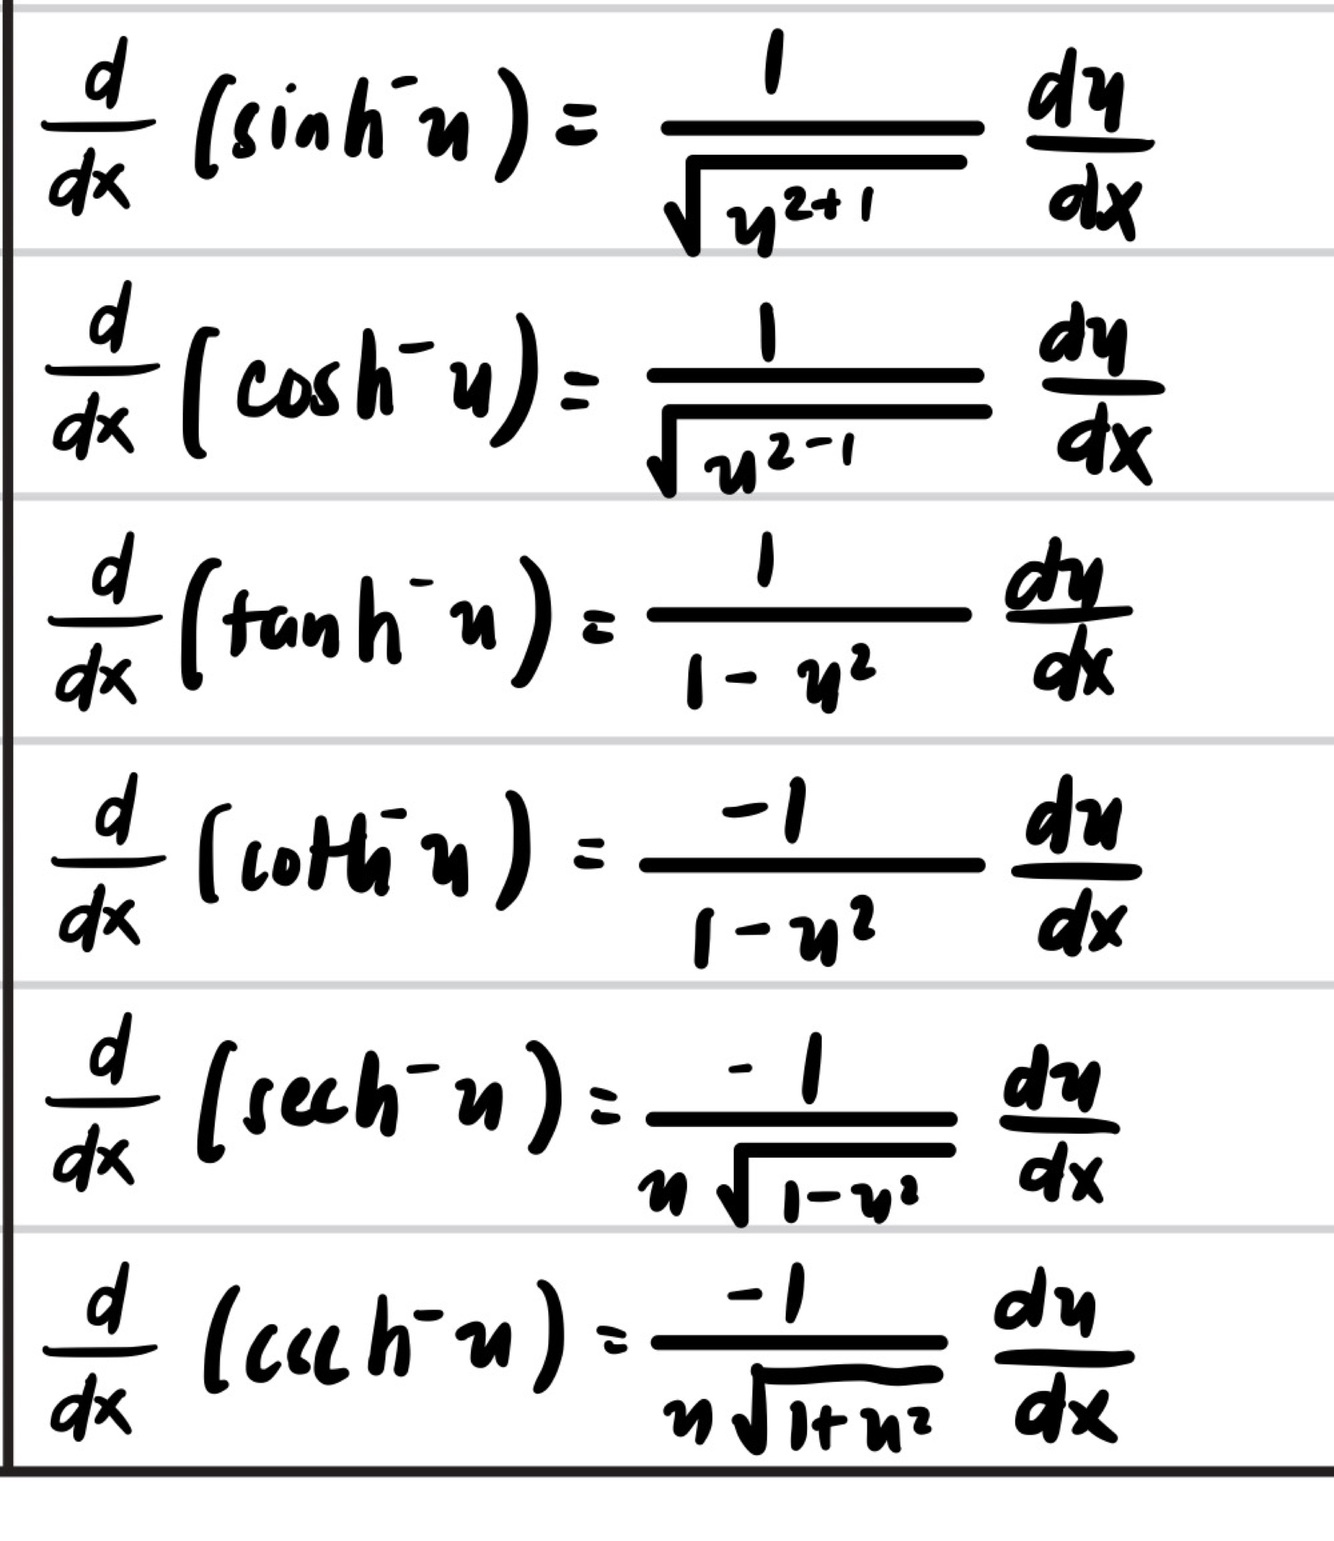 d/dx (sinh⁻u) = 1/√(u²⁺¹) du/dx
d/dx (cosh⁻u) = 1/√(u²⁻¹) du/dx
d/dx (tanh⁻u) = 1/(1-u²) du/dx
d/dx (coth⁻u) = -1/(1-u²) du/dx
d/dx (sech⁻u) = -1/(u√(1-u²)) du/dx
d/dx (csch⁻u) = -1/(u√(1+u²)) du/dx